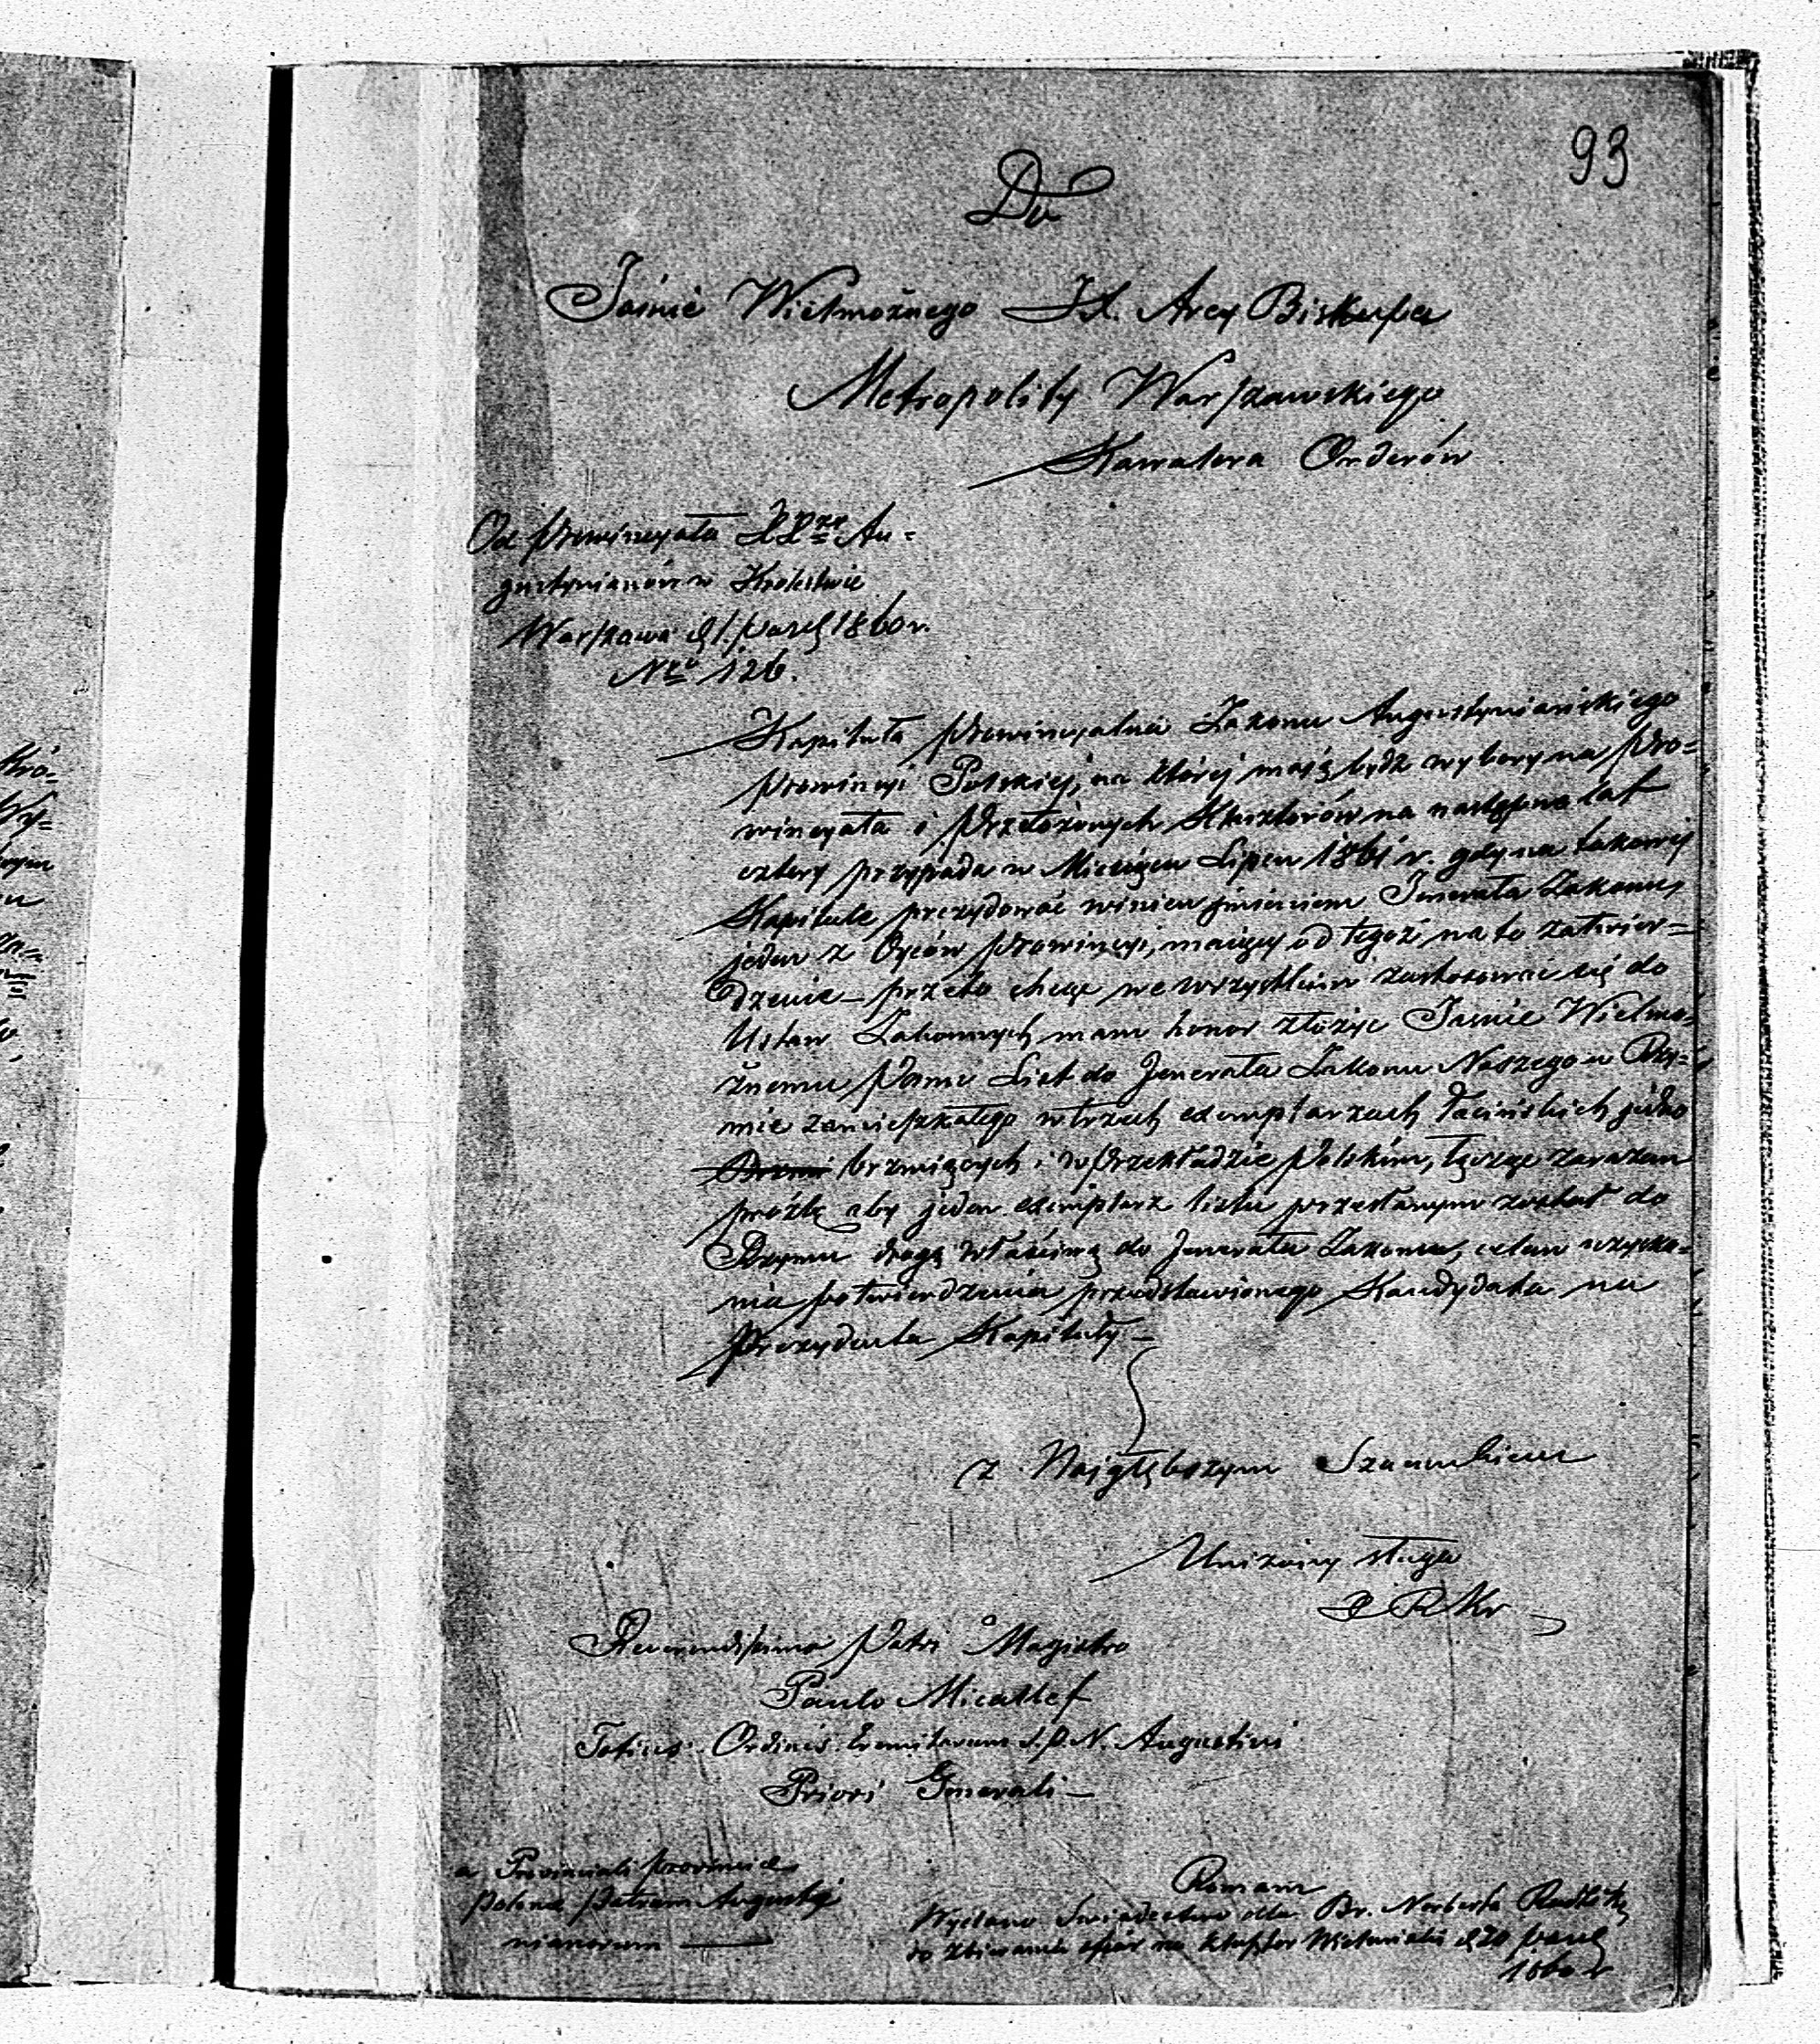 93
Do
Jaśnie Wielmożnego JX. Arcy Biskupa
Metropolity Warszawskiego
Kawalera Orderów
Od Prowincyała XX. Au=
gustynianów w Królestwie
Warszawa d 1. Paźd 1860 r.
Nro 126.
Kapituła Prowincyalna Zakonu Augustyniańskiego
Prowincyi Polskiej, na której mają bydz wybory na Pro=
wincyała i Przełożonych Klasztorów na następne lat
cztery przypada w Miesiącu Lipcu 1861 r. gdy na takowej
Kapitule prezydować winien imieniem Jenerała Zakonu,
jeden z Oyców Prowincyi, maiący od tegoż na to zatwier=
dzenie – przeto chcąc we wszystkim zastosować się do
Ustaw Zakonnych mam honor złożyć Jaśnie Wielmo=
żnemu Panu List do Jenerała Zakonu Naszego w Rzy=
mie zamieszkałego w trzech exemplarzach łacińskich jedno
brzmiących i w przekładzie Polskim, łącząc zarazem
prożbę aby jeden exemplarz listu przesłanym został do
Rzymu drogą właściwą do Jenerała Zakonu, celem uzyska=
nia potwierdzenia przedstawionego Kandydata na
Prezydenta Kapituły –
z Najgłębszym Szacunkiem
Uniżony sługa
X R Kr
Reverendissimo Patri Magistro
Paulo Micallef
Totius Ordinis Eremitarum S. P. N. Augustini
Priori Generali –
a Provinciali Provinciae
Polonae Patrum Augusti
nianorum
Romam
Wydano Świadectwo dla Br. Norberta
do zbierania ofiar na klasztor Wieluński d 20 Paźd
1860 r
Kró=
Wy=